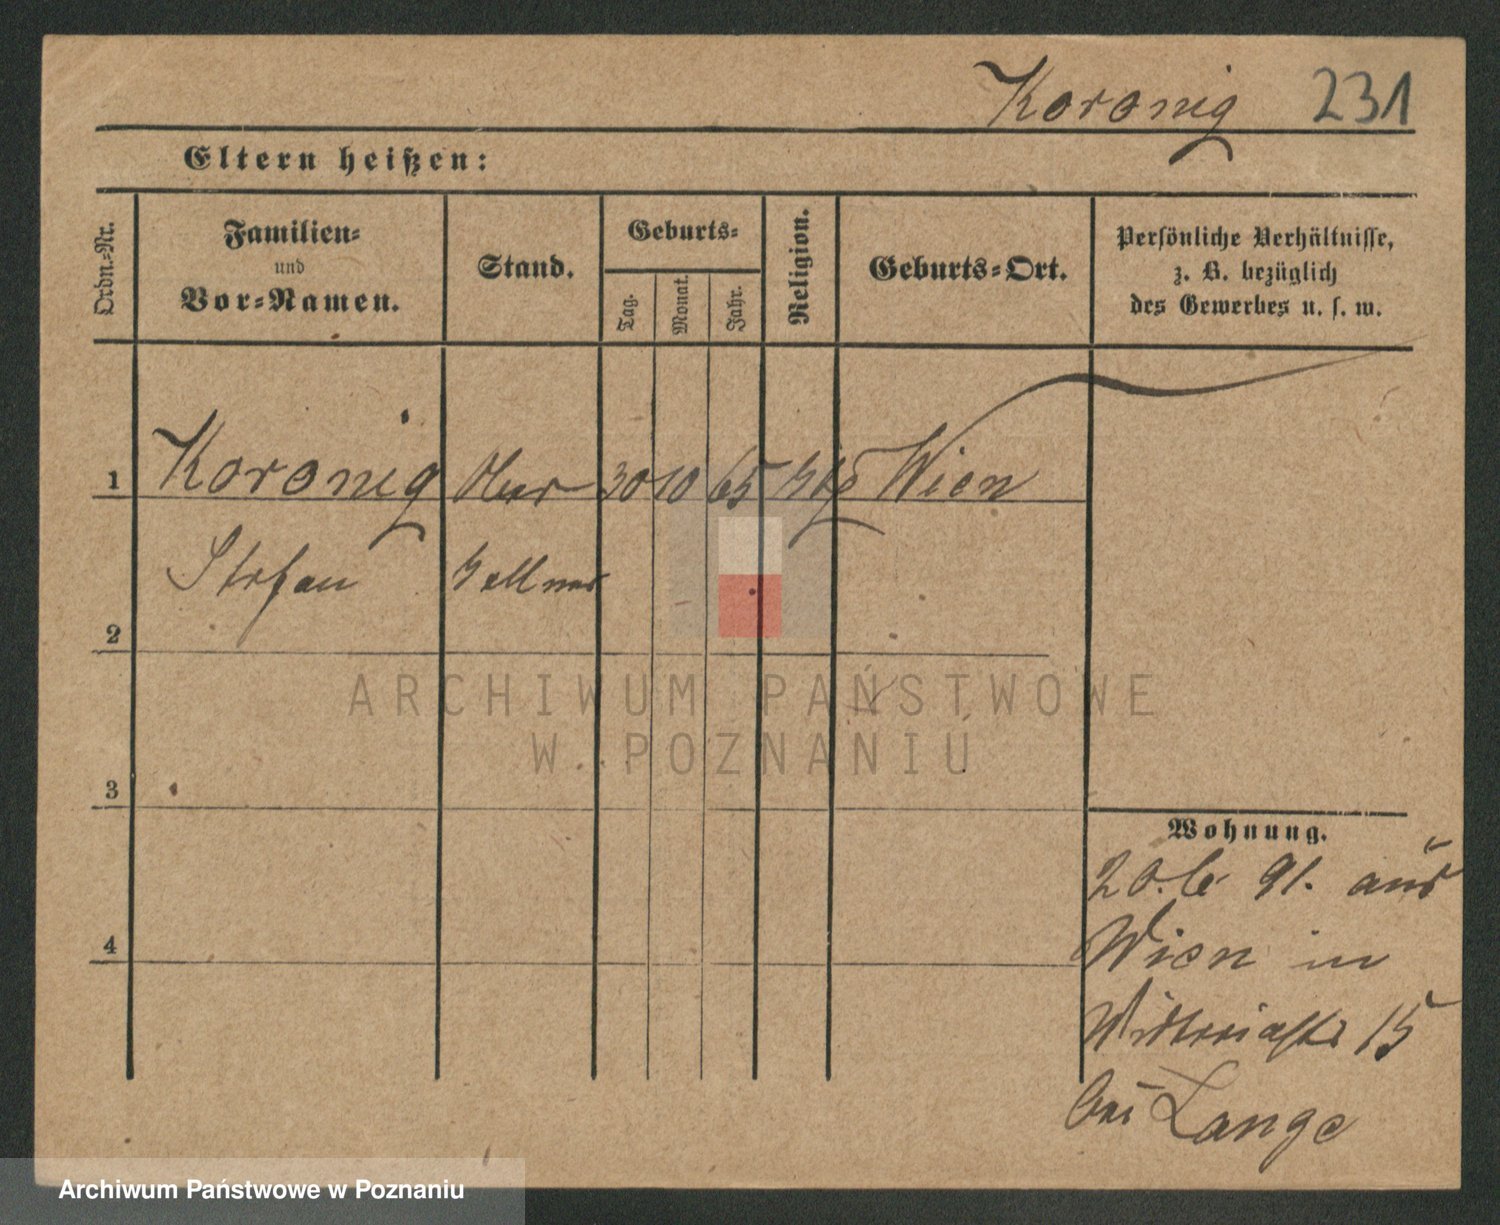 Koronig 231
Eltern heißen:
Ordn.-Nr.
Familien-
und
Vor-Namen.
Stand.
Geburts-
Tag.
Monat.
Jahr.
Religion.
Geburts-Ort.
Persönliche Verhältnisse,
z. B. bezüglich
des Gewerbes u. s. w.
1 Koronig Ober 30 10 65 Wien
Stefan Kellner
2
3
4
Wohnung.
20. 6 91. aus
Wien in
Victoriastr 15
bei Lange
ARCHIWUM PAŃSTWOWE
W POZNANIU
Archiwum Państwowe w Poznaniu